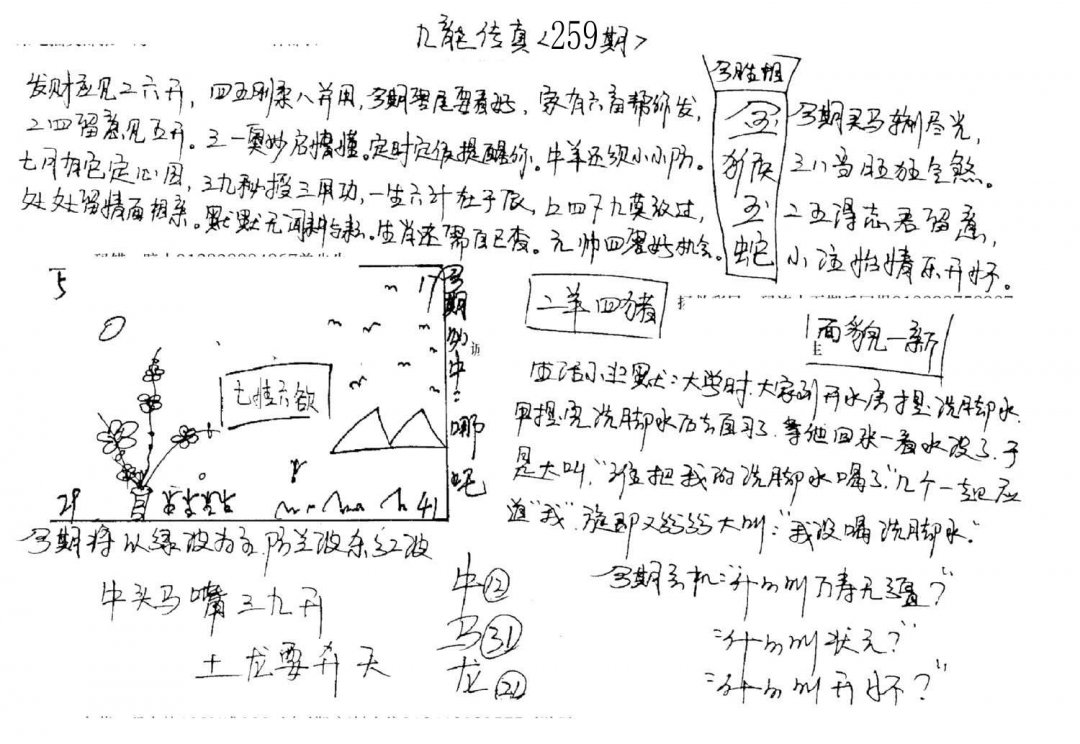 九龍传真<259期>
发财应见二六开，四五刚柔八并用，今期密尾要看好，家有六畜帮你发，
二四留意见五开。三一奥妙启情怀。定时定候提醒你。牛羊还须小小防。
七月有它定心因，三九秘授三用功，一生六计在于辰，上四下九莫放过，
处处留情面相亲。默默无闻耕耘。生肖还需自己查。元帅四留好机会。
今期买马杀尽光，
三八当旺狂全煞。
二五得志君留意，
小注怡情乐开怀。
猴
蛇
5
17
七情六欲
29
41
今期
中：
哪
吒
二羊四猪
面貌一新
生活小幽默：大学时，大家到开水房提洗脚水
甲提完洗脚水后去自习了，等他回来一看水没了，于
是大叫，"谁把我的洗脚水喝了"，几个一起应
道"我"，旋即又纷纷大叫："我没喝洗脚水。"
今期将以绿波为主，防兰波杀红波
牛头马嘴三九开
土龙要升天
牛⑫
马㉛
龙㉑
今期玄机："什么叫万寿无疆？"
"什么叫状元？"
"什么叫开怀？"